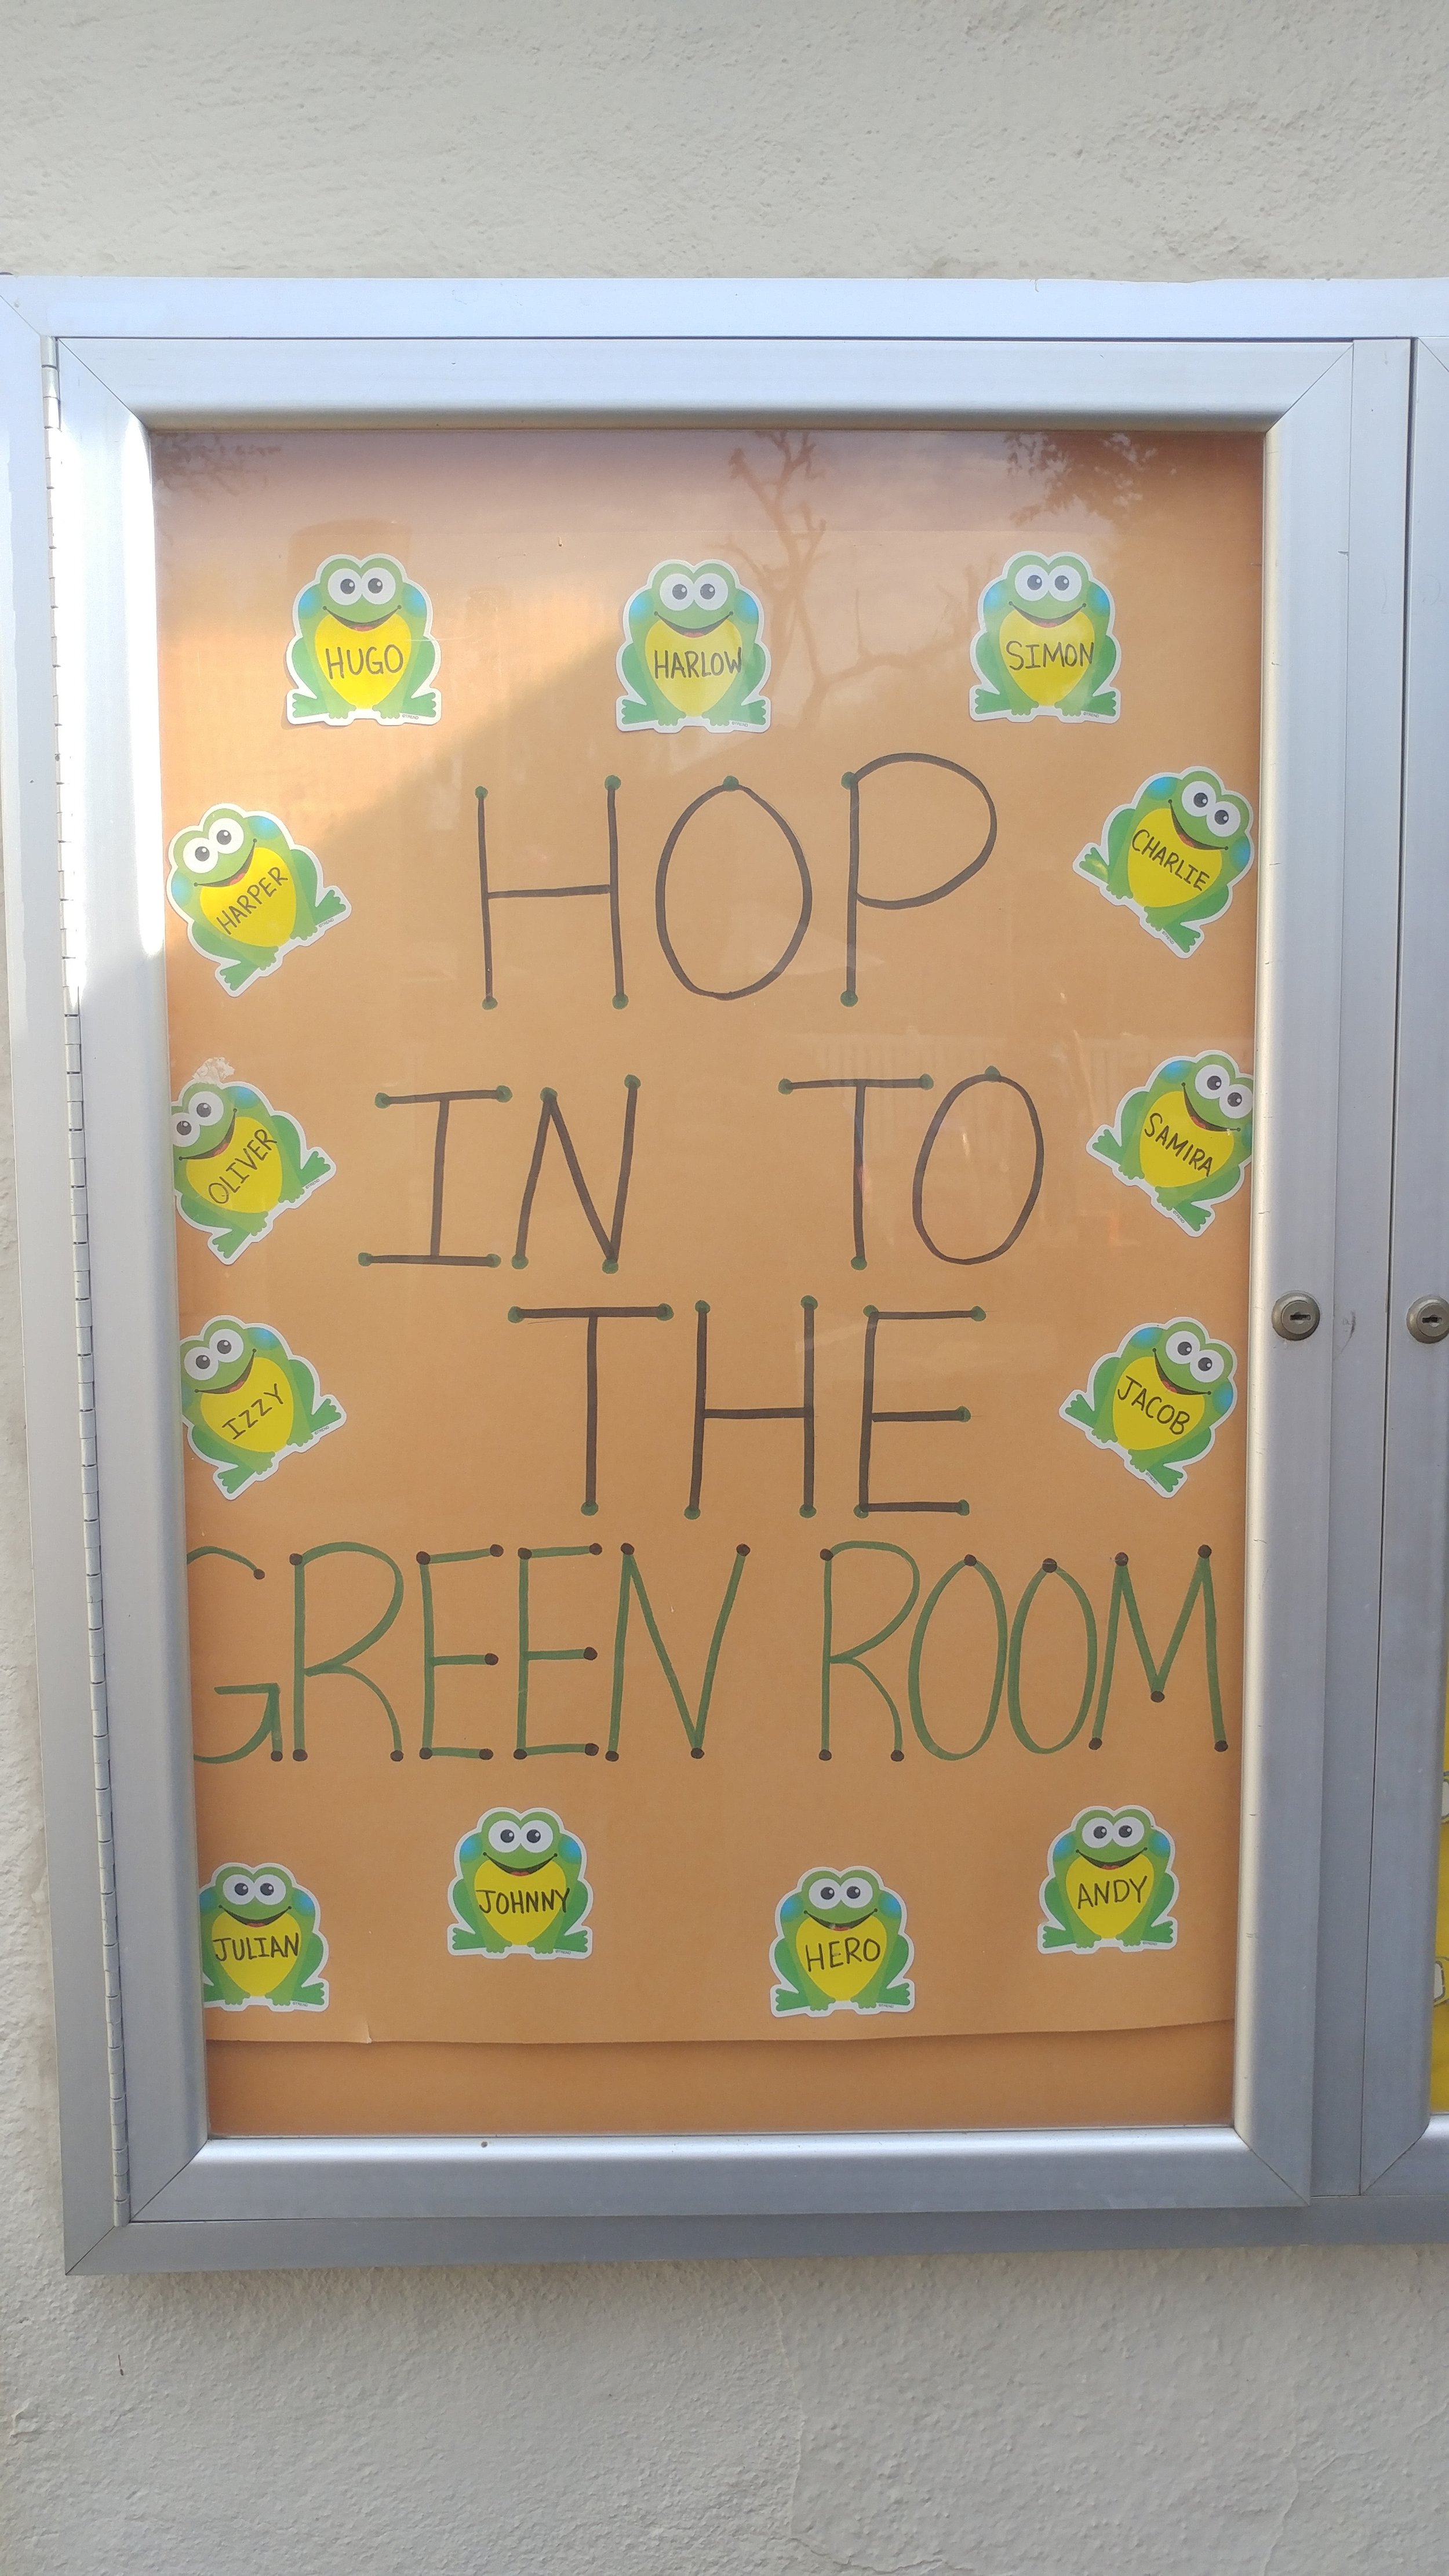 HUGO
HARLOW
SIMON
HARPER
CHARLIE
HOP
OLIVER
SAMIRA
IN TO
IZZY
JACOB
THE
GREEN ROOM
JULIAN
JOHNNY
HERO
ANDY